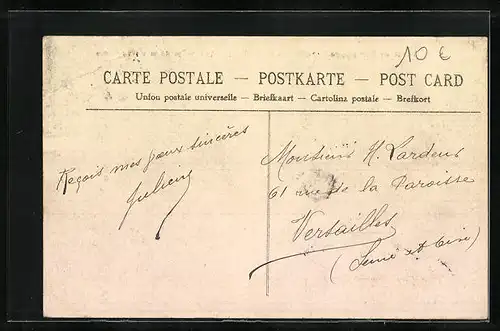 10 €
CARTE POSTALE — POSTKARTE — POST CARD
Union postale universelle — Briefkaart — Cartolina postale — Brefkort
Reçois mes vœux sincères
Monsieur H. Lardeur
61 rue de la Paroisse
Versailles
(Seine et Oise)